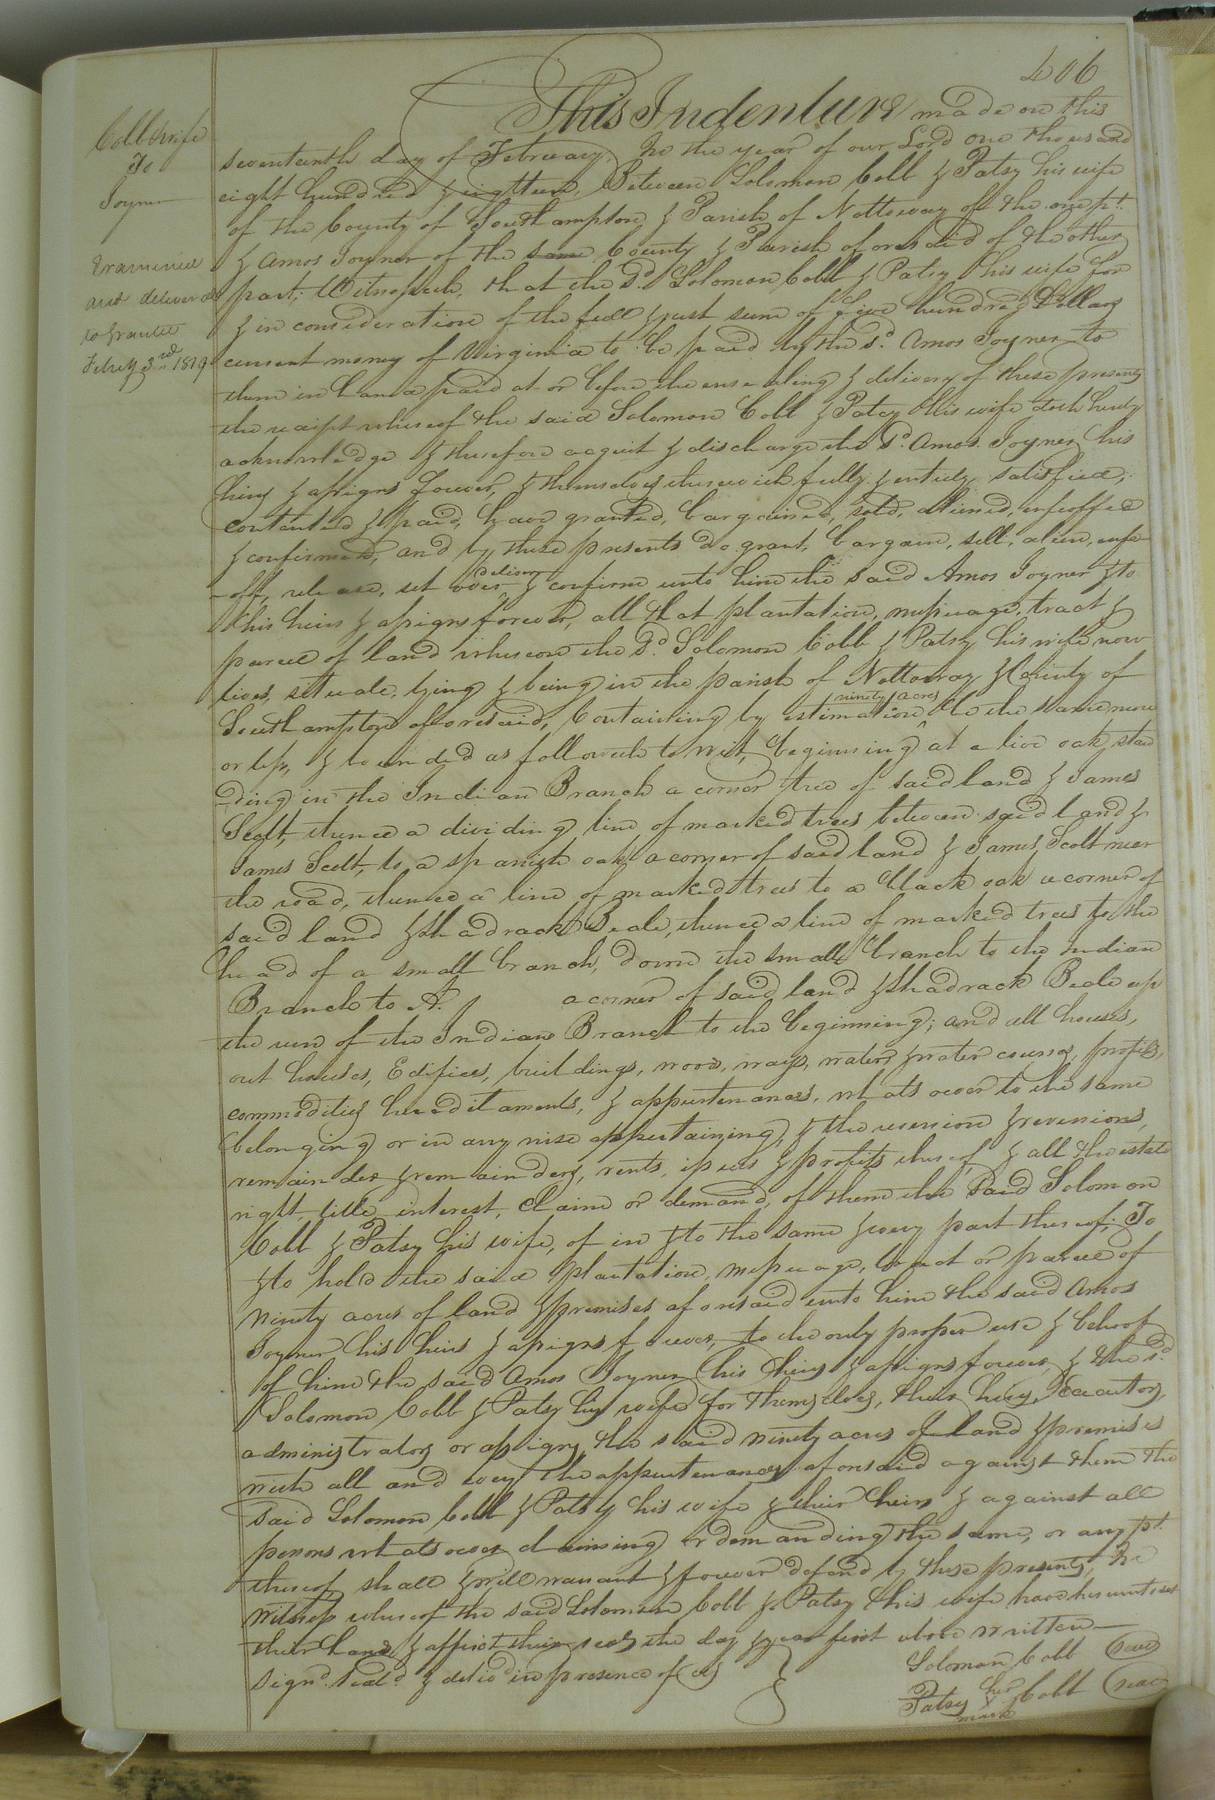 406
Cobb & wife
To
Joyner
Examined
and delivered
to grantee
Feb'y 3rd 1819
This Indenture made on this
seventeenth day of February, In the year of our Lord one thousand
eight hundred & eighteen, Between Solomon Cobb & Patsy his wife
of the County of Southampton & Parish of Nottoway of the one pt.
& Amos Joyner of the same County & Parish aforesaid of the other
part; Witnesseth, that the sd. Solomon Cobb & Patsy his wife for
& in consideration of the full & just sum of five hundred Dollars
current money of Virginia to be paid by the sd. Amos Joyner to
them in hand paid at or before the ensealing & delivery of these presents
the receipt whereof the said Solomon Cobb & Patsy his wife doth hereby
acknowledge & therefore acquit & discharge the sd. Amos Joyner his
heirs & assigns forever, & themselves therewith fully & entirely satisfied,
contented & paid, have granted, bargained, sold, aliened, enfeoffed
& confirmed, and by these presents do grant, bargain, sell, alien, enfe-
-off, release, set over, deliver & confirm unto him the said Amos Joyner & to
his heirs & assigns forever, all that plantation, messuage, tract &
parcel of land whereon the sd. Solomon Cobb & Patsy his wife now
lives, situate, lying & being in the parish of Nottoway & County of
Southampton aforesaid, Containing by estimation ninety acres be the same more
or less, & bounded as followeth to wit, beginning at a live oak, stan
-ding in the Indian Branch a corner tree of said land & James
Scott, thence a dividing line of marked trees between said land &
James Scott, to a spanish oak a corner of said land & James Scott near
the road, thence a line of marked trees to a black oak a corner of
said land & Shadrack Beale, thence a line of marked trees to the
head of a small branch, down the small branch to the Indian
Branch to A. a corner of said land & Shadrack Beale up
the run of the Indian Branch to the beginning; and all houses,
out houses, Edifices, buildings, woods, ways, waters & water courses, profits,
commodities hereditaments, & appurtenances, whatsoever to the same
belonging or in any wise appertaining, & the reversion & reversions,
remainder & remainders, rents, issues & profits thereof, & all the estate
right, title, interest, claim or demand, of them the said Solomon
Cobb & Patsy his wife, of in & to the same & every part thereof; To
& to hold the said plantation, messuage, tract or parcel of
ninety acres of land & premises aforesaid unto him the said Amos
Joyner his heirs & assigns forever, to the only proper use & behoof
of him the said Amos Joyner his heirs & assigns forever, & the sd.
Solomon Cobb & Patsy his wife for themselves, their heirs, Executors,
administrators or assigns the said ninety acres of land & premises
with all and every the appurtenances aforesaid against them the
said Solomon Cobb & Patsy his wife & their heirs & against all
persons whatsoever claiming or demanding the same, or any pt.
thereof, shall & will warrant & forever defend by these presents, In
Witness whereof the said Solomon Cobb & Patsy his wife have hereunto set
their hand & affixt their seals the day & year first above written—
Sign'd. Seal'd. & deliv'd in presence of us }
Solomon Cobb (seal)
Patsy her X mark Cobb (seal)